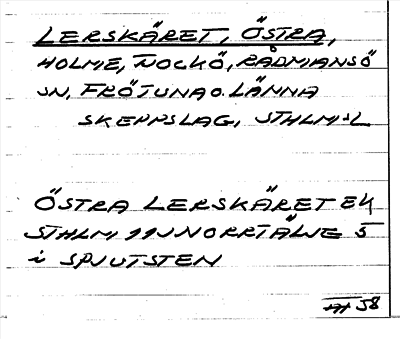 LERSKÄRET, ÖSTRA,
HOLME, NOCKÖ, RÅDMANSÖ
SN, FRÖTUNA O. LÄNNA
SKEPPSLAG, STHLMSL
ÖSTRA LERSKÄRET EK
STHLM 11J NORRTÄLJE 5
i SPJUTSTEN
58